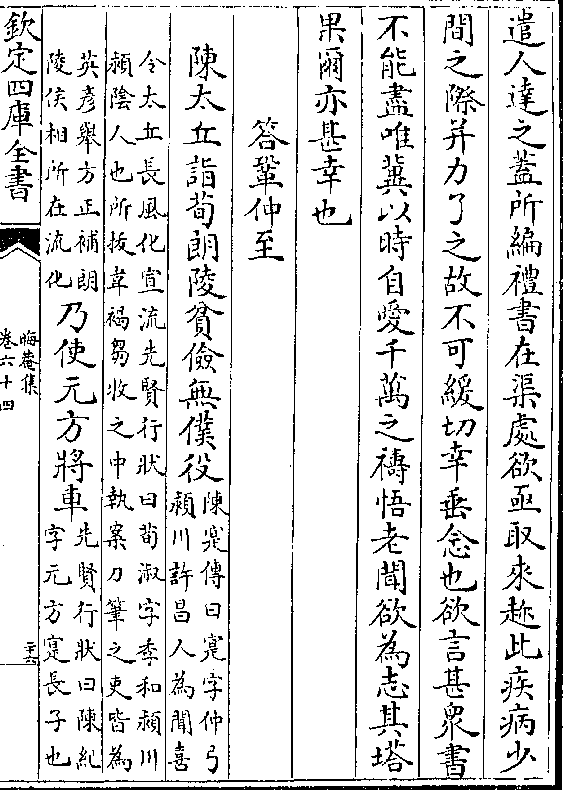 遣人達之蓋所編禮書在渠處欲亟取來趂此疾病少
間之隙并力了之故不可緩切幸垂念也欲言甚衆書
不能盡唯冀以時自愛千萬之禱悟老聞欲為志其塔
果爾亦甚幸也
答鞏仲至
陳太丘詣荀朗陵貧儉無僕役
陳寔傳曰寔字仲弓
潁川許昌人為聞喜
令太丘長風化宣流先賢行狀曰荀淑字季和潁川
潁陰人也所拔韋褐芻牧之中執案刀筆之吏皆為
英彥舉方正補朗
陵侯相所在流化
乃使元方將車
先賢行狀曰陳紀
字元方寔長子也
欽定四庫全書
晦菴集
卷六十四